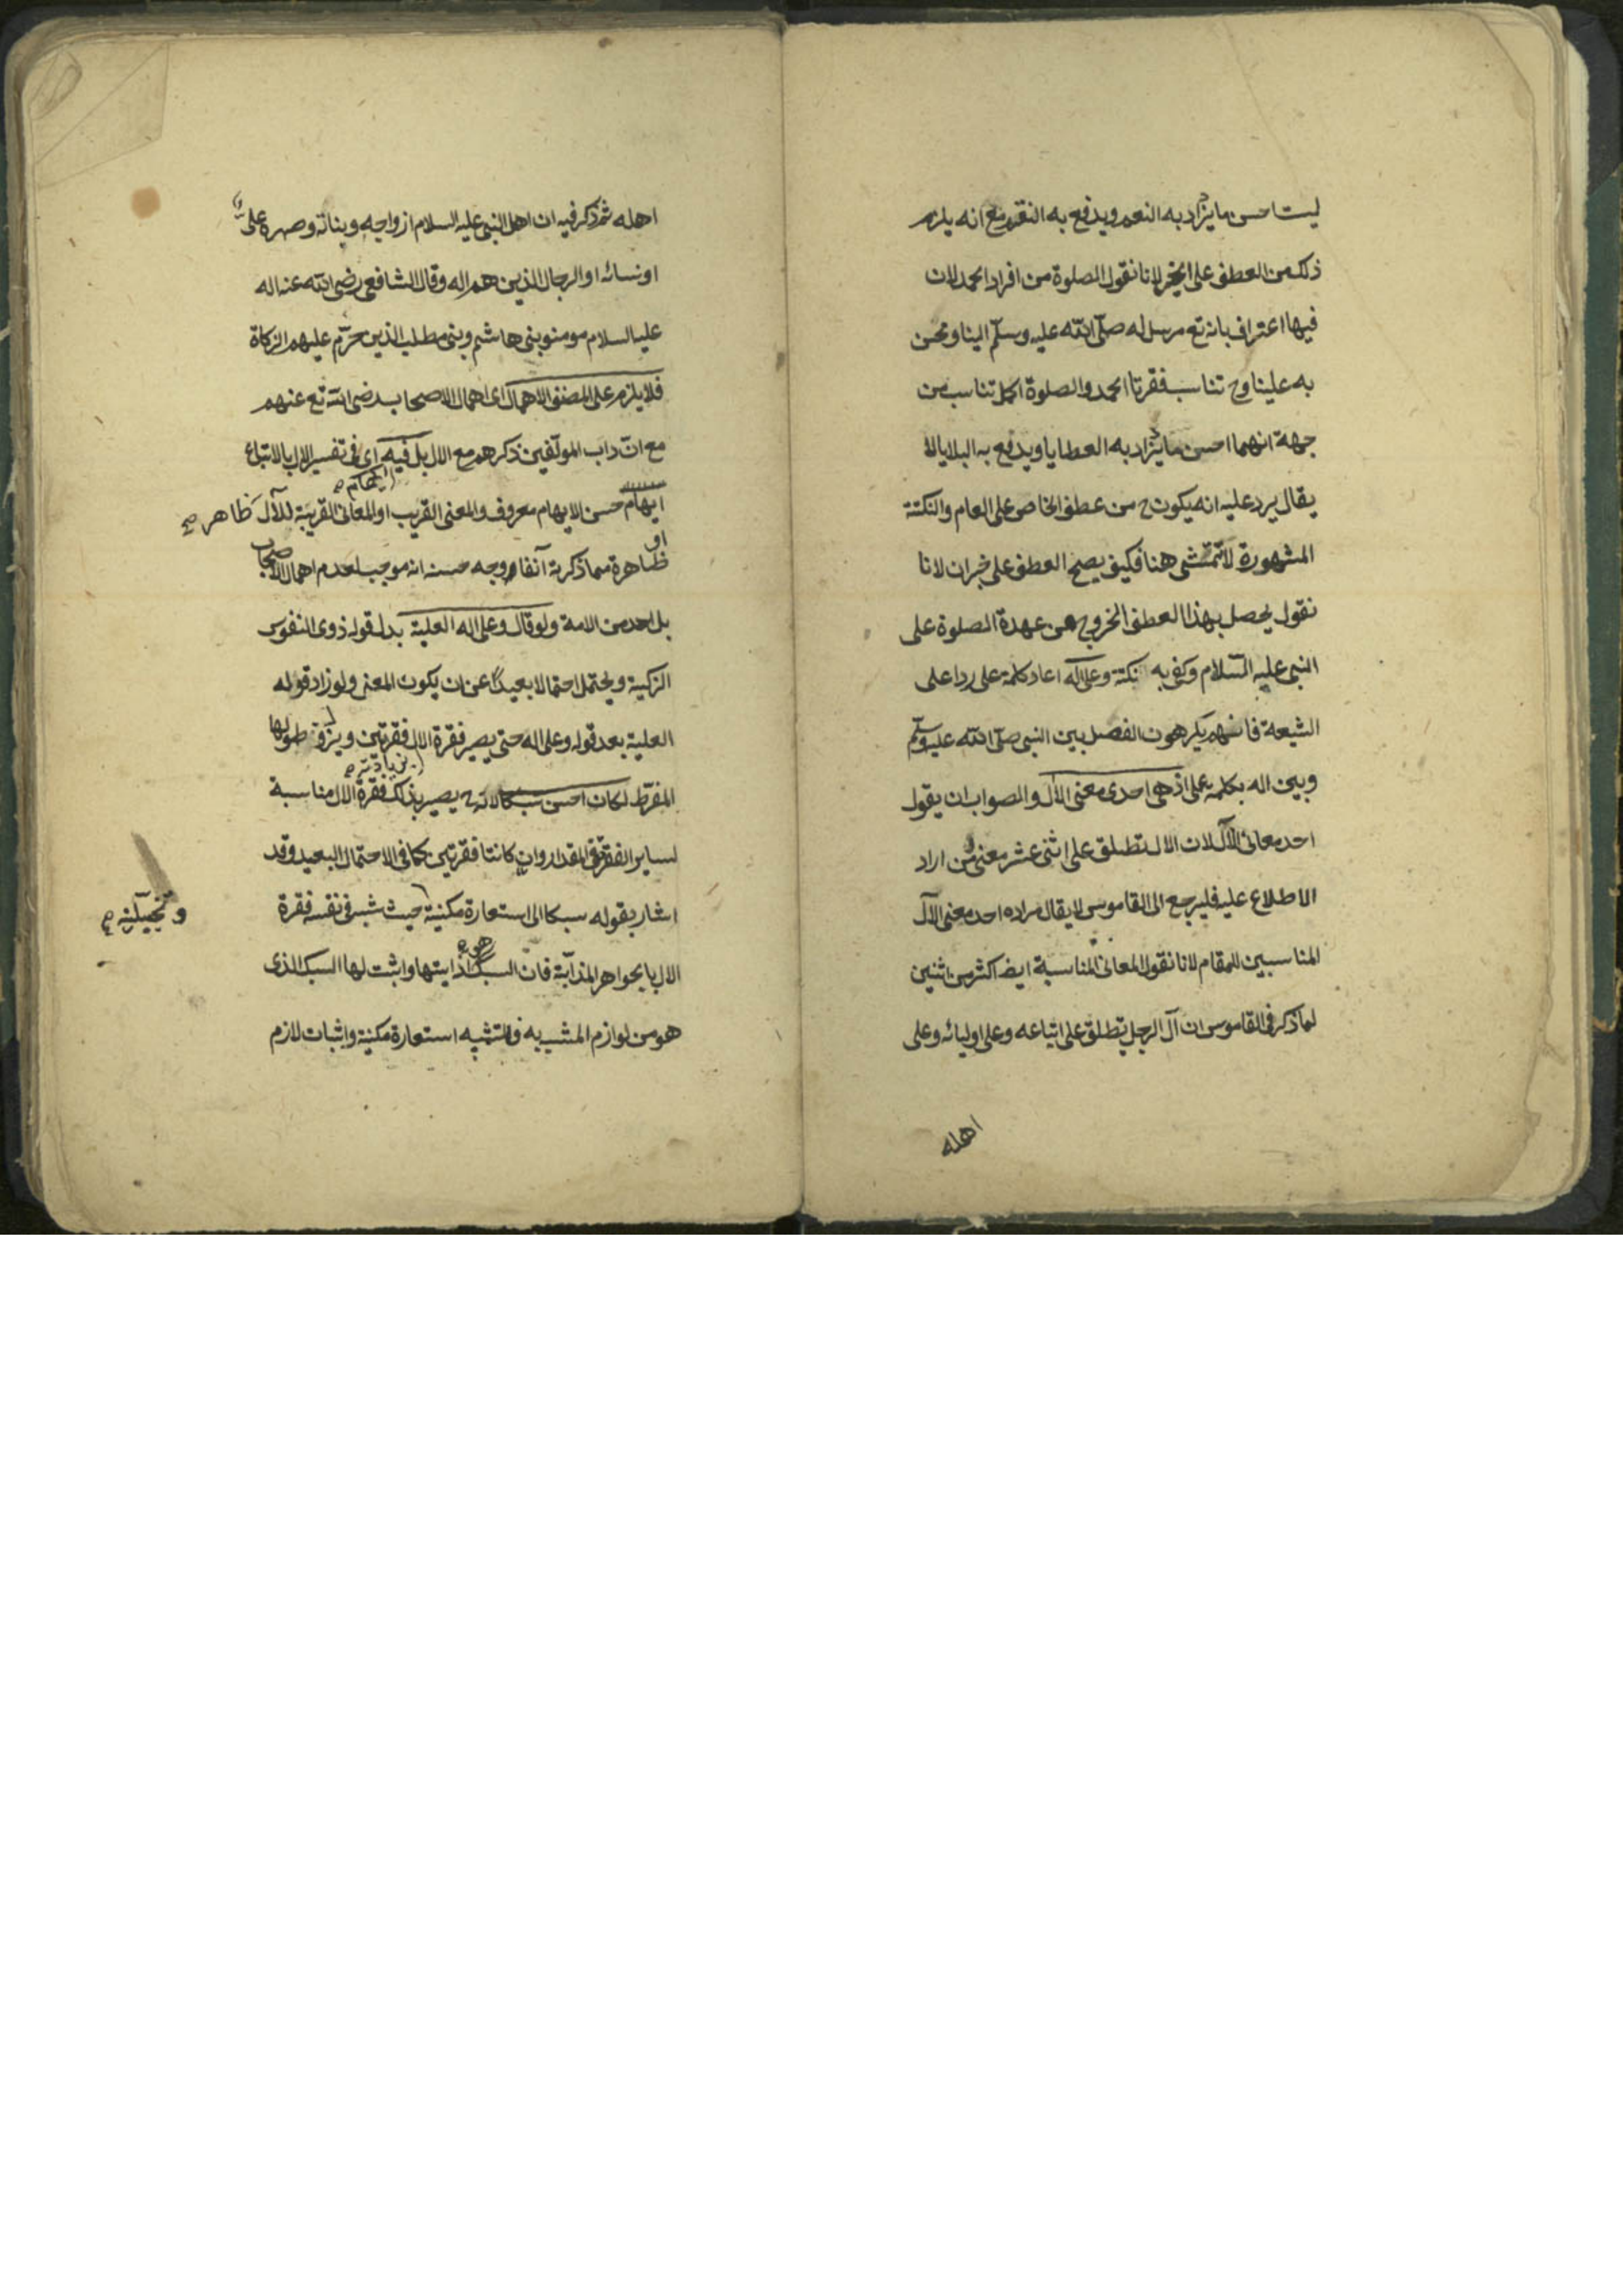 ليست احسن ما يزاد به النعم ويدفع به النقم مع انه يلزم
ذلك من العطف على الخبر لانا نقول الصلوة من افراد الحمد لان
فيها اعتراف بانه تع مرسل له صلى الله عليه وسلم الينا ونحن
به علينا وح تناسب فقرتا الحمد والصلوة اكمل تناسب من
جهة انهما احسن ما يزاد به العطايا ويدفع به البلايا لا
يقال يرد عليه انه يكون ح من عطف الخاص على العام والنكتة
المشهورة لا تتمشى هنا فكيف يصح العطف على خبر ان لانا
نقول يحصل بهذا العطف الخروج عن عهدة الصلوة على
النبي عليه السلام وكفى به نكتة وعلى اله اعاد كلمة على ردا على
الشيعة فانهم يكرهون الفصل بين النبي صلى الله عليه وسلم
وبين اله بكلمة على اذ هي احدى معنى الآل والصواب ان يقول
احد معانى الآل لان الال تطلق على اثنى عشر معنى ومن اراد
الاطلاع عليه فليرجع الى القاموس لا يقال مراده احد معنى الآل
المناسبين للمقام لانا نقول المعانى المناسبة ايضا اكثر من اثنين
لما ذكر فى القاموس ان آل الرجل تطلق على اتباعه وعلى اوليائه وعلى
اهله
اهله ثم ذكر فيه ان اهل النبى عليه السلام ازواجه وبناته وصهره على
او نسائه او الرجال الذين هم اله وقال الشافعى رضى الله عنه اله
عليه السلام مومنو بنى هاشم وبنى مطلب الذين حرم عليهم الزكاة
فلا يلزم على المصنف الاهمال اى اهمال الاصحاب رضى الله تع عنهم
مع ان داب المولفين ذكرهم مع الال بل فيه اى فى تفسير الال بالاتباع
ايهام صح
ايهام حسن الايهام معروف والمعنى القريب او المعانى القريبة للآل ظاهر صح
او
ظاهرة مما ذكرته آنفا ووجه حسنه انه موجب لعدم اهمال الاصحاب
بل احد من الامة ولو قال وعلى اله العلية بدل قوله ذوى النفوس
الزكية ويحتمل احتمالا بعيدا عن ان يكون المعنى ولو زاد قوله
العلية بعد قوله وعلى اله حتى يصير فقرة الال فقرتين ويزول طولها
بزيادته صح
المفرط لكان احسن سبكا لانه ح يصير بذلك فقرة الال مناسبة
لساير الفقر فى المقدار وان كانتا فقرتين كما فى الاحتمال البعيد وقد
اشار بقوله سبكا الى استعارة مكنية حيث شبه فى نفسه فقرة
وتخييلية صح
هو
الال بالجواهر المذابة فان السبك اذابتها واثبت لها السبك الذى
هو من لوازم المشبه به فالتشبيه استعارة مكنية واثبات لازم